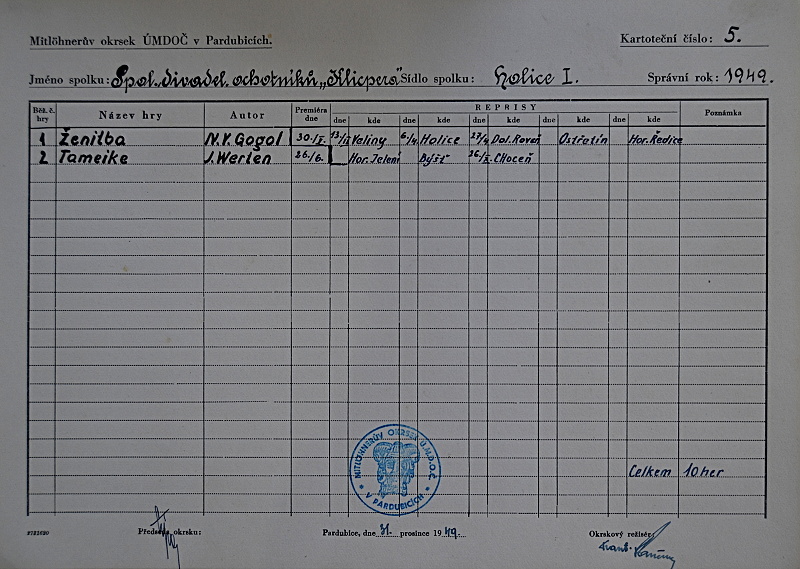 Mitlöhnerův okrsek ÚMDOČ v Pardubicích. Kartoteční číslo: 5.
Jméno spolku: Spol. divadel. ochotníků „Klicpera" Sídlo spolku: Holice I. Správní rok: 1949.
Běž. č. hry Název hry Autor Premiéra dne REPRISY Poznámka
dne kde dne kde dne kde dne kde dne kde
1 Ženitba N.V. Gogol 30./I. 13/II Veliny 6/4 Holice 27/4 Dol. Roveň Ostřetín Hor. Ředice
2 Tameike J. Werten 26/6. Hor. Jelení Býšť 26/X. Choceň
MITLÖHNERŮV OKRSEK Ú.M.D.O.Č. V PARDUBICÍCH
Celkem 10 her
Předseda okrsku: Pardubice, dne 31. prosince 1949. Okrskový režisér: